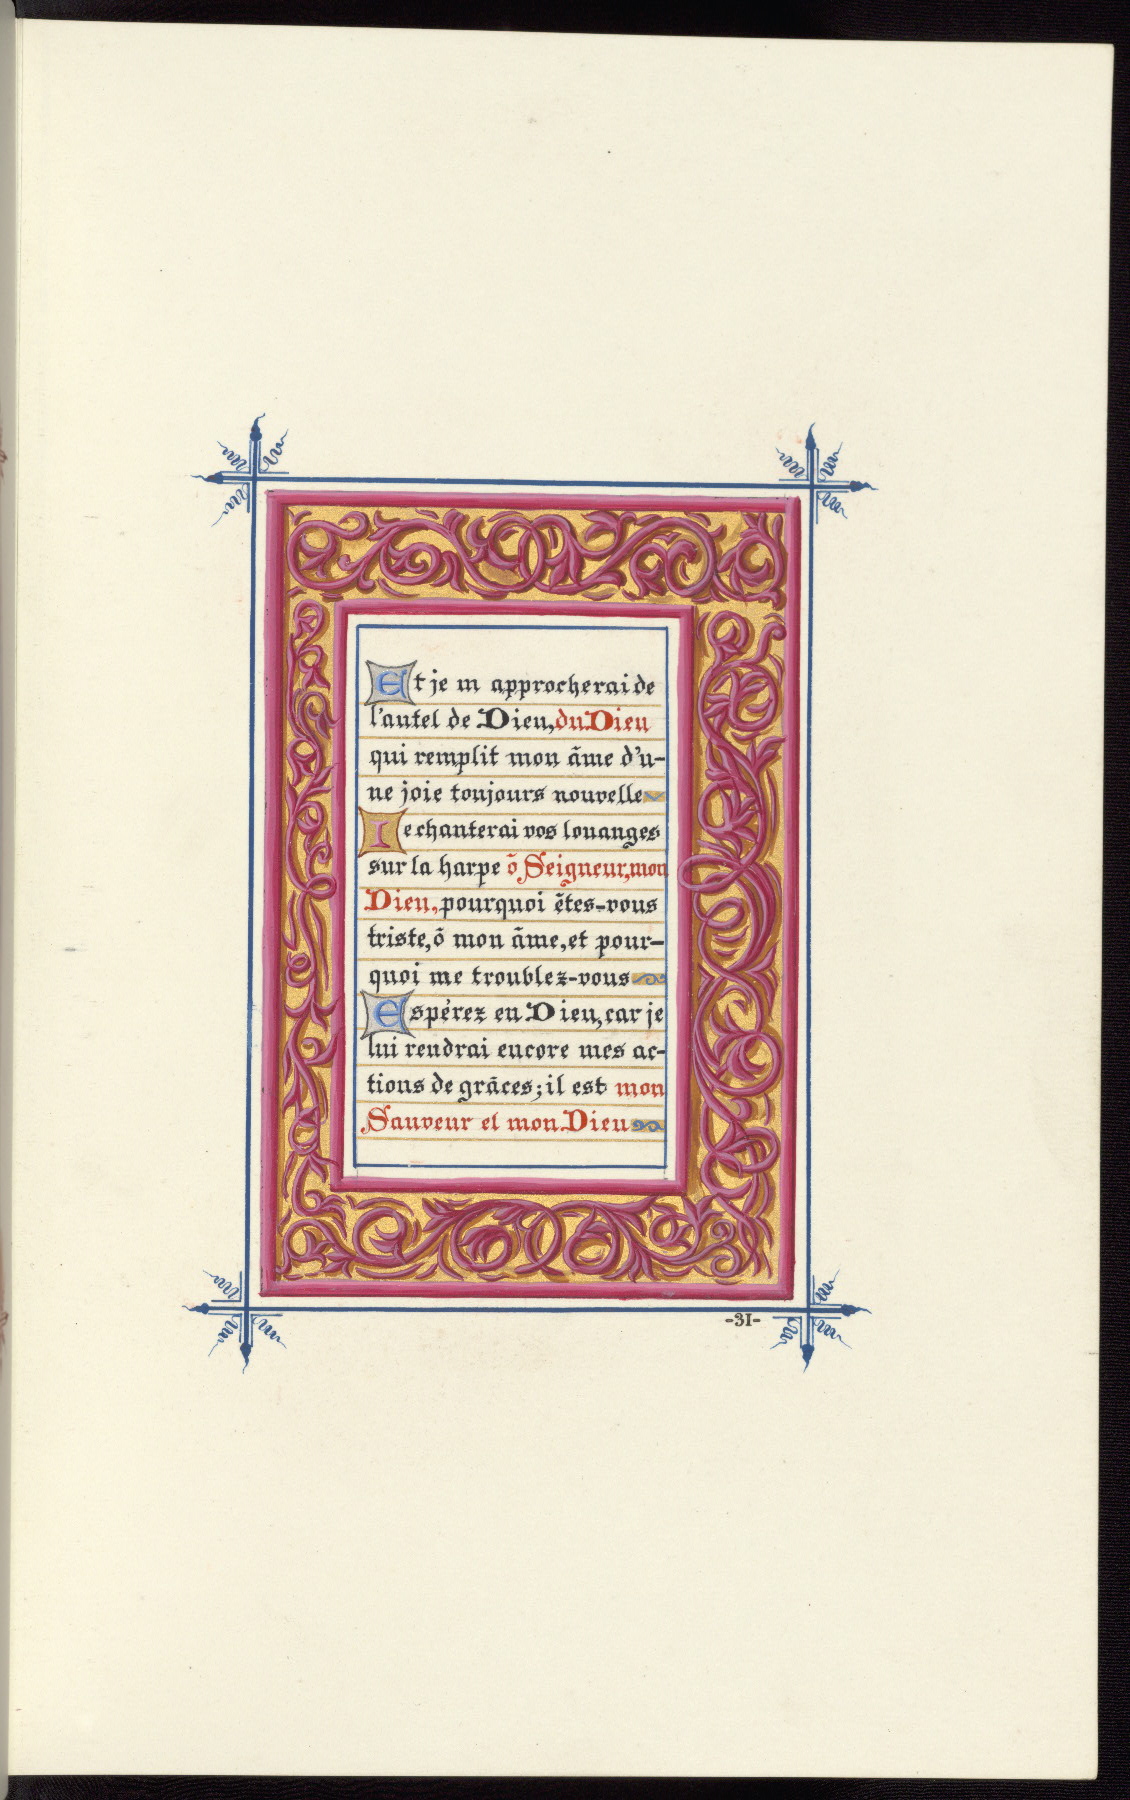 Et je m approcherai de
l'autel de Dieu, du Dieu
qui remplit mon āme d'u-
ne joie toujours nouvelle
Ie chanterai vos louanges
sur la harpe ō Seigneur, mon
Dieu, pourquoi ētes-vous
triste, ō mon āme, et pour-
quoi me troublez-vous
Espérez en Dieu, car je
lui rendrai encore mes ac-
tions de grāces; il est mon
Sauveur et mon Dieu
-31-